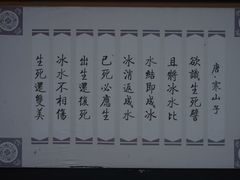 唐·寒山子
欲識生死譬
且將冰水比
水結即成冰
冰消返成水
已死必應生
出生還復死
冰水不相傷
生死還雙美